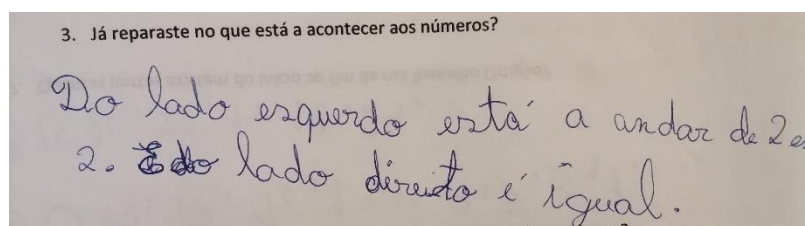 3. Já reparaste no que está a acontecer aos números?
Do lado esquerdo está a andar de 2 e
2. E do lado direito é igual.